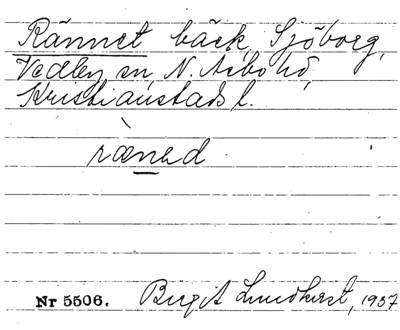 Rännet bäck, Sjöborg,
Vedby sn, N. Åsbo hd,
Kristianstads l.
rænəd
Nr 5506. Birgit Lundkvist, 1937